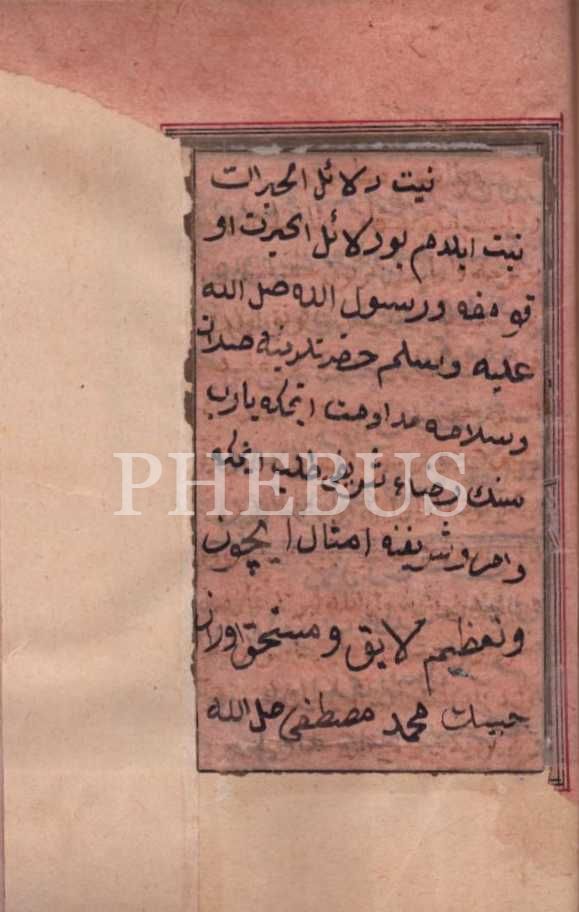 نیت دلائل الخیرات
نیت ایلدم بو دلائل الخیرت او
قومغه ورسول الله صل الله
علیه وسلم حضرتلرینه صلاة
وسلامه مداومت ایتمکه یارب
سنك رضاء شریفی طلب ایتمکه
وامر وشریفنه امتثال ایچون
وتعظیم لایق ومستحق اوران
حبیبك محمد مصطفی صل الله
PHEBUS